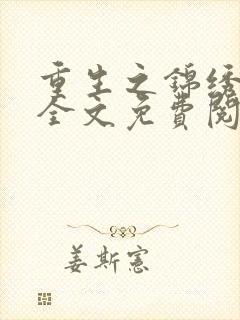 重生之锦绣
全文免费阅
姜斯宪